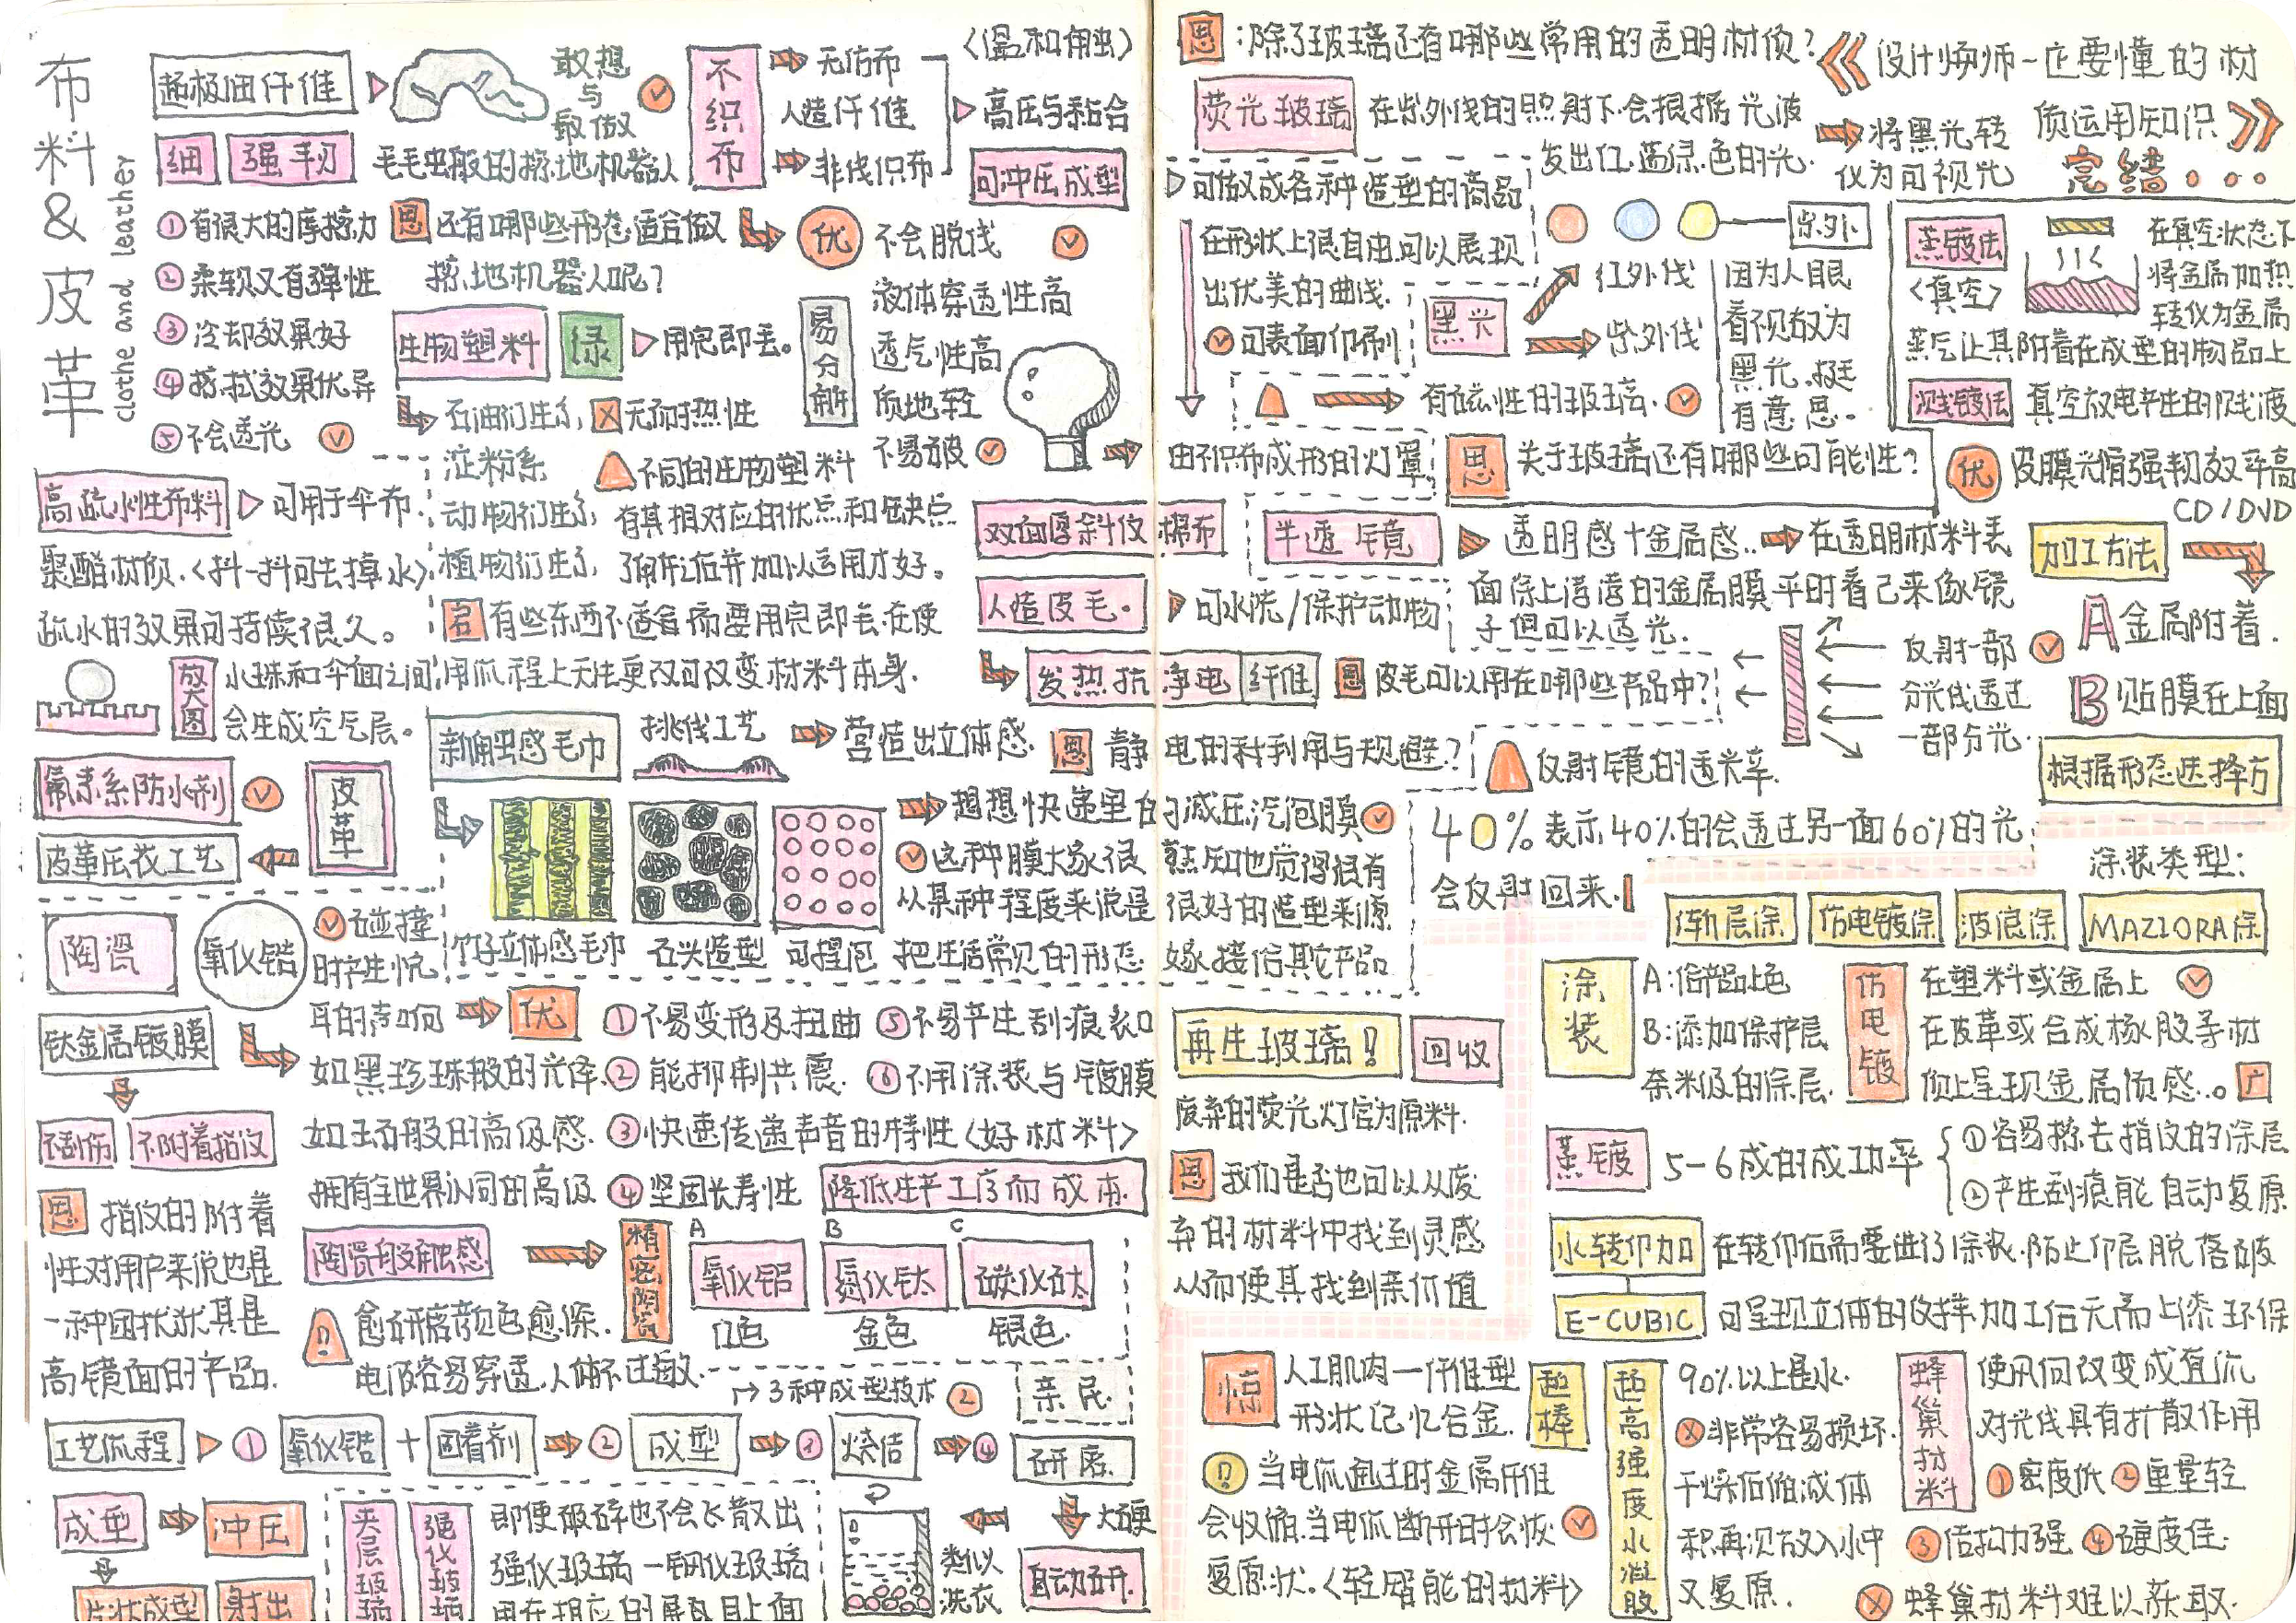 布料&皮革
clothe and leather
超极细纤维
敢想与敢做
细 强韧
毛毛虫般的擦地机器人
①有很大的摩擦力
②柔软又有弹性
③冷却效果好
④擦拭效果优异
⑤不会透光
思 还有哪些形态适合做
擦地机器人呢?
不织布
无纺布
人造纤维
非线织布
<温和触>
高压与粘合
可冲压成型
优 不会脱线
液体穿透性高
透气性高
质地轻
不易皱
由不织布成形的灯罩
生物塑料 绿 用完即丢。
易分解
石油衍生系 无耐热性
淀粉系
动物衍生系
植物衍生系
不同的生物塑料
有其相对应的优点和缺点
了解之后并加以运用才好。
高疏水性布料 可用于伞布
聚酯材质.<抖一抖可去掉水>
疏水的效果可持续很久。
放大图
水珠和伞面之间
会生成空气层。
若 有些东西不适合需要用完即丢.在使
用流程上无法更改可改变材料本身.
双面厚斜纹棉布
人造皮毛。 可水洗/保护动物
发热抗静电纤维
思 皮毛可以用在哪些产品中?
氟素系防水剂
皮革
皮革压花工艺
新触感毛巾
挑线工艺
营造出立体感.
思 静电的利用与规避?
竹子立体感毛巾 石头造型 可捏泡
想想快递里的减压汽泡膜
这种膜大家很熟知也觉得很有
从某种程度来说是很好的造型来源
把生活常见的形态嫁接给其它产品
陶瓷 氧化锆
碰撞
时产生悦
耳的声响
钛金属镀膜
如黑珍珠般的光泽.
如玉石般的高级感.
拥有全世界认同的高级
不刮伤 不附着指纹
优
①不易变形及扭曲
②能抑制共震.
③快速传递声音的特性<好材料>
④坚固长寿性
⑤不易产生刮痕裂口
⑥不用涂装与镀膜
降低生产工序而成本.
思 指纹的附着
性对用户来说也是
一种困扰尤其是
高镜面的产品.
陶瓷般触感
精密陶瓷
A 氧化铝 白色
B 氮化钛 金色
C 碳化钛 银色.
愈研磨颜色愈深.
电波容易穿透.人体不过敏.
3种成型技术 ②
亲民.
工艺流程 ① 氧化锆 + 固着剂 ② 成型 ③ 烧结 ④ 研磨.
成型 冲压
片状成型 射出
夹层玻璃 强化玻璃
即便破碎也不会飞散出
强化玻璃一钢化玻璃
用在相应的屏幕上面
类似
洗衣
自动研.
思:除了玻璃还有哪些常用的透明材质?
设计师一定要懂的材
质运用知识
完结。。。
荧光玻璃 在紫外线的照射下会根据光波
发出红.蓝绿.色的光.
将黑光转
化为可视光
可做成各种造型的商品
在形状上很自由.可以展现
出优美的曲线.
可表面印刷
紫外
黑光 红外线
紫外线
因为人眼
看视故为
黑光.挺
有意思。
有磁性的玻璃.
蒸镀法
<真空>
在真空状态下
将金属加热
转化为金属
蒸气让其附着在成型的物品上
溅镀法 真空放电产生的
优 皮膜光滑强韧效率高
CD/DVD
思 关于玻璃还有哪些可能性?
半透镜 透明感+金属感.. 在透明材料表
面涂上薄薄的金属膜平时看起来像镜
子但可以透光.
反射一部
分光线透过
一部分光.
反射镜的透光率.
40%表示40%的会透过另一面60%的光
会反射回来.
加工方法
A金属附着.
B贴膜在上面
根据形态选择方
涂装类型:
软层涂 仿电镀涂 波浪涂 MAZIORA涂
涂装
A:给产品上色
B:添加保护层
奈米级的涂层.
仿电镀
在塑料或金属上
在皮革或合成橡胶等材
质上呈现金属质感。
蒸镀 5-6成的成功率
①容易擦去指纹的涂层
②产生刮痕能自动复原
水转印加 在转印后需要进行涂装.防止印层脱落破
E-CUBIC 可呈现立体的纹样.加工后无需上漆环保
再生玻璃! 回收
废弃的荧光灯管为原料.
思 我们是否也可以从废
弃的材料中找到灵感
从而使其找到亲价值
惊 人工肌肉一纤维型
形状记忆合金.
超棒
当电流通过时金属纤维
会收缩.当电流断开时会恢
复原状.<轻智能的材料>
超高强度水凝胶
90%以上是水.
非常容易损坏.
干燥后缩减体
积再次放入水中
又复原.
蜂巢材料
使风向改变成直流
对光线具有扩散作用
①密度低②重量轻
③结构力强④硬度佳.
蜂巢材料难以获取.